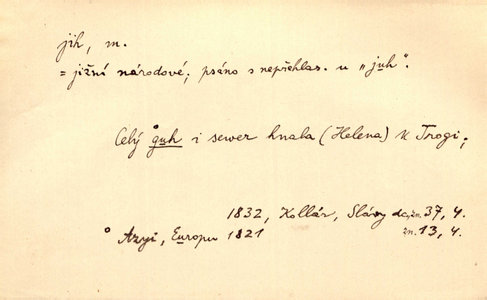 jih, m.
= jižní národové; psáno s nepřehlas. u „juh“.
Celý guh i sewer hnala (Helena) k Trogi;
1832, Kollár, Sláwy dc, zn. 37, 4.
° Azyi, Europu 1821 zn. 13, 4.